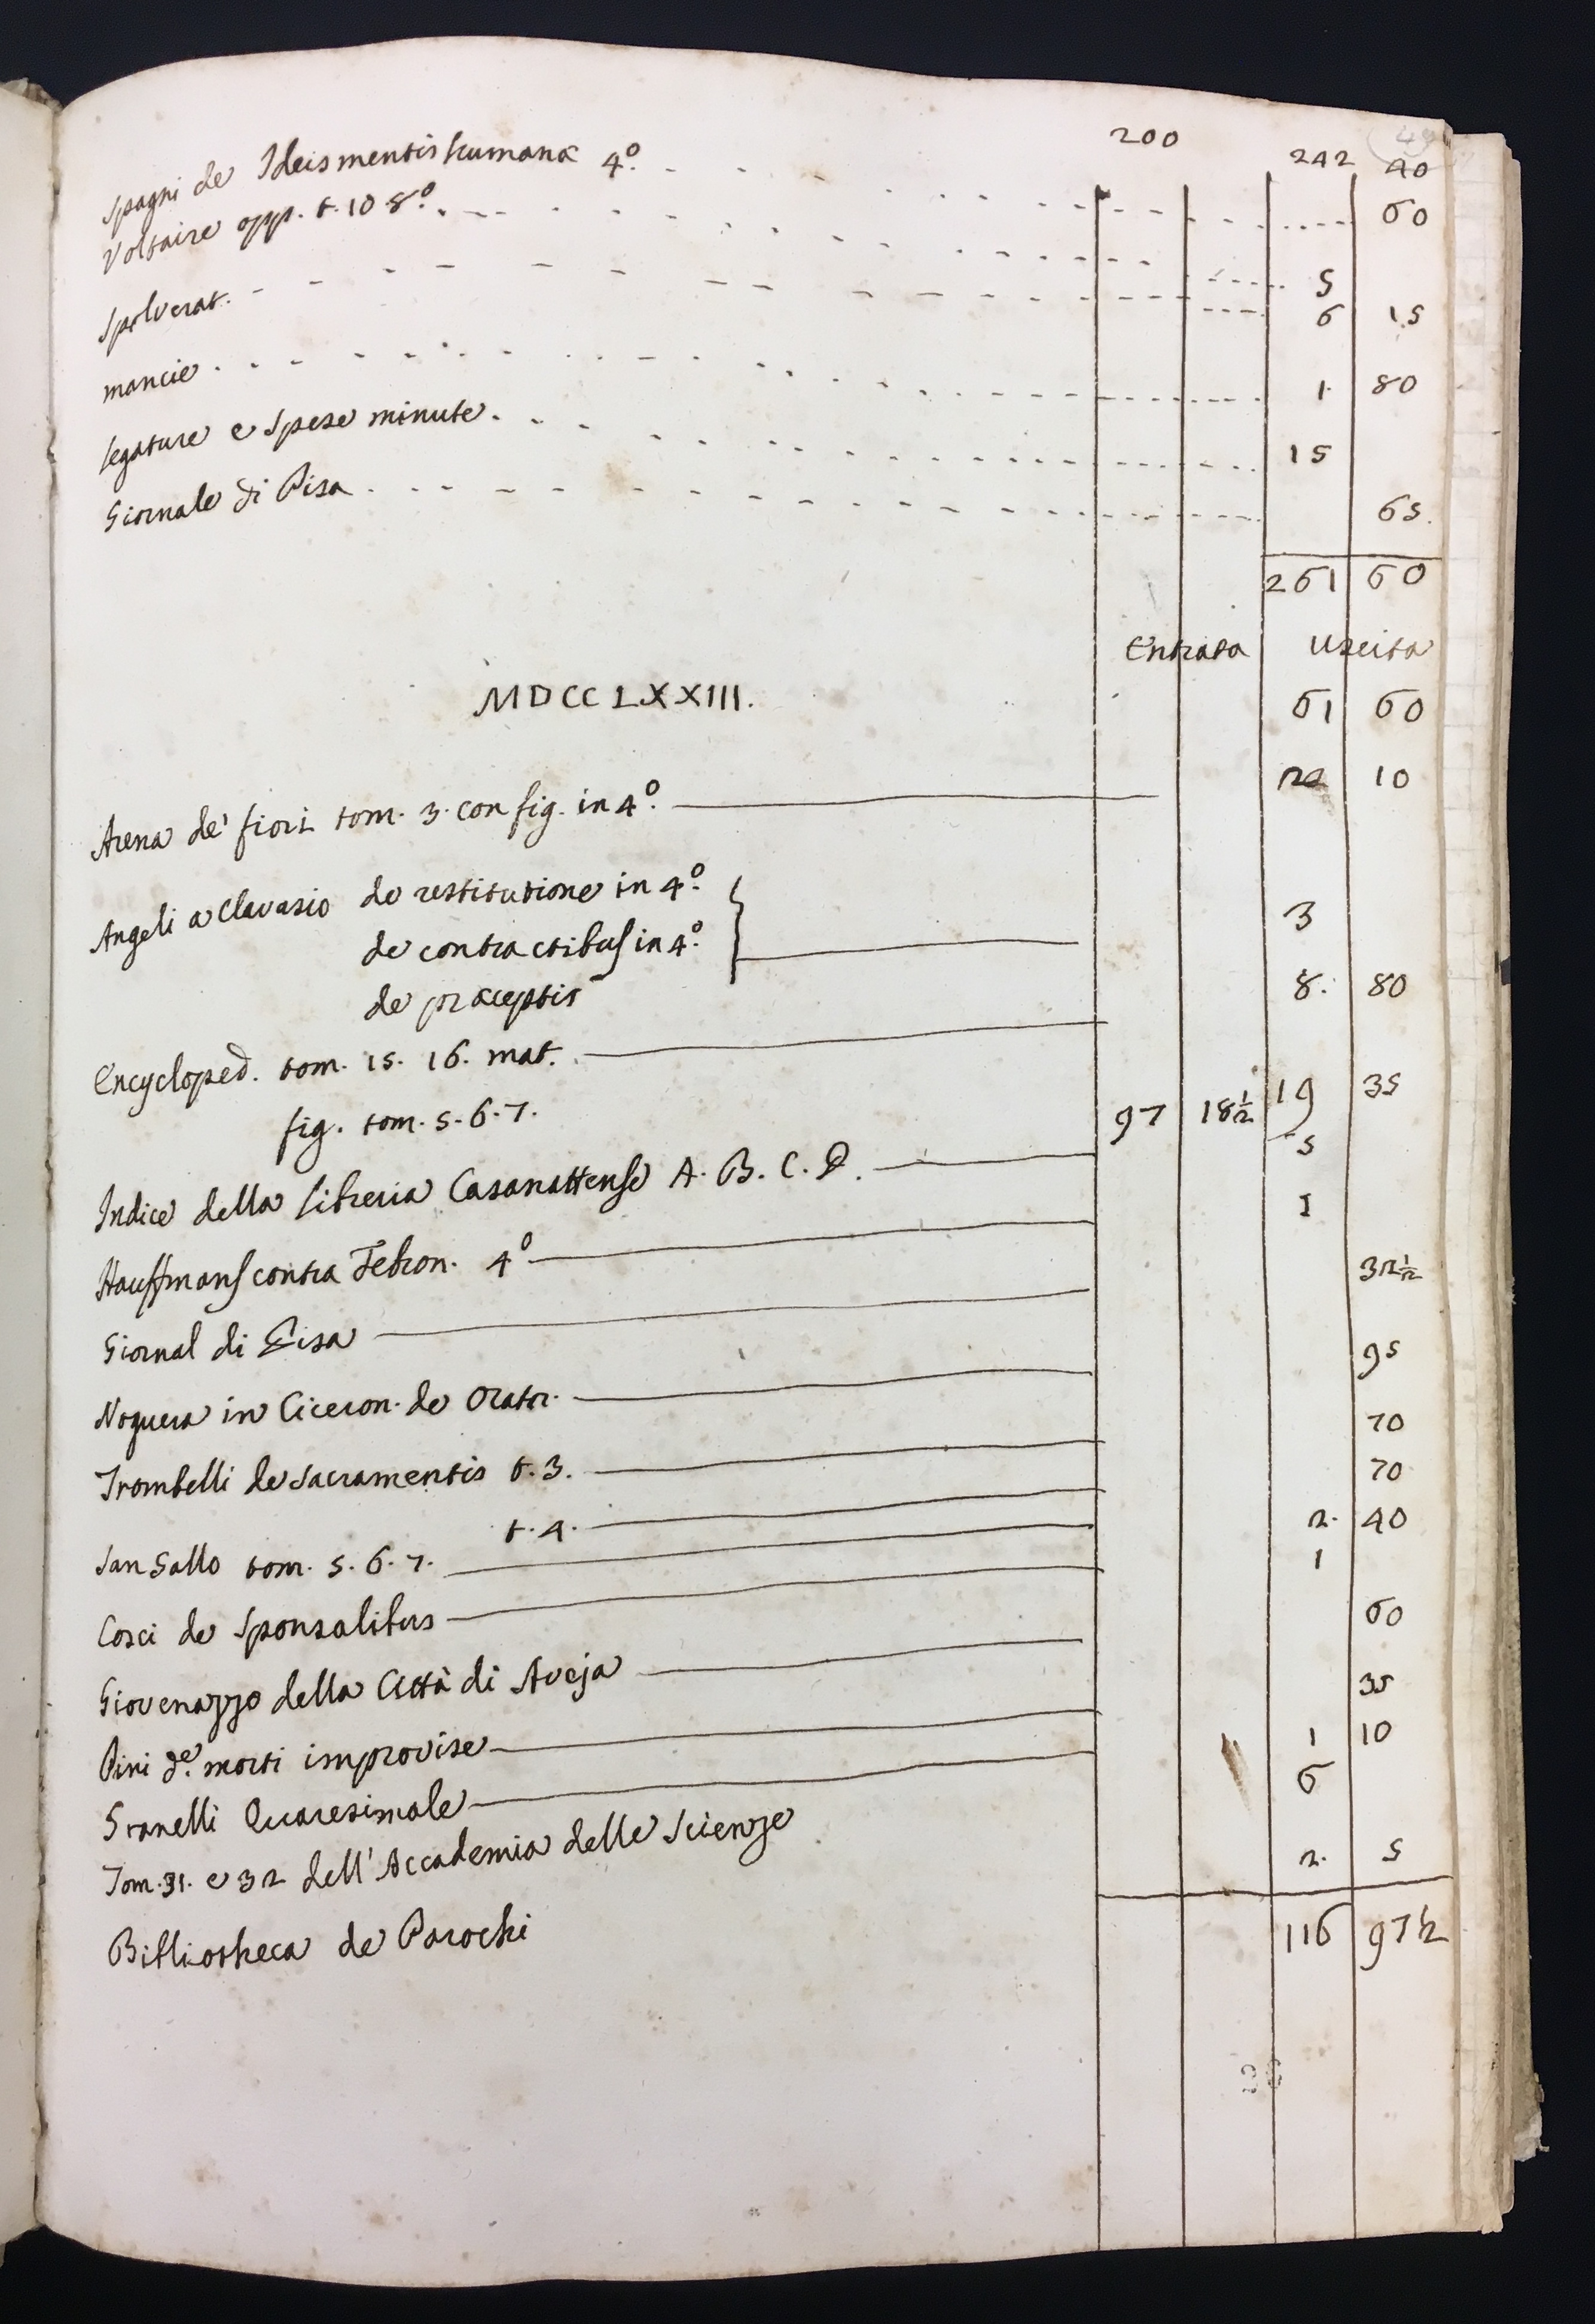 200 242 40
Spagni de Ideis mentis humanæ 4º. 60
Voltaire opp. t. 10 8º. 5
Spolverat. 6 15
mancie 1. 80
legature e spese minute. 15
Giornale di Pisa 65.
261 60
Entrata Uscita
MDCCLXXIII. 61 60
Arena de' fiori tom. 3. con fig. in 4º. 10
Angeli a Clavasio de restitutione in 4º.
de contractibus in 4º. 3
de præceptis
Encycloped. tom. 15. 16. mat. 8. 80
fig. tom. 5. 6. 7.
Indice della libreria Casanattense A. B. C. D. 97 18½ 19 35
Hauffmans contra Febron. 4º 5
Giornal di Pisa 1
Noguera in Ciceron. de Orator. 32½
Trombelli de Sacramentis t. 3. 95
t. 4. 70
San Gallo tom. 5. 6. 7. 70
Cosci de Sponsalibus 2. 40
Giovenazzo della Città di Aveja 1
Pini de. morti improvise 60
Granelli Quaresimale 35
Tom. 31. e 32 dell' Accademia delle Scienze 1 10
Bibliotheca de Parochi 6
2. 5
116 97½